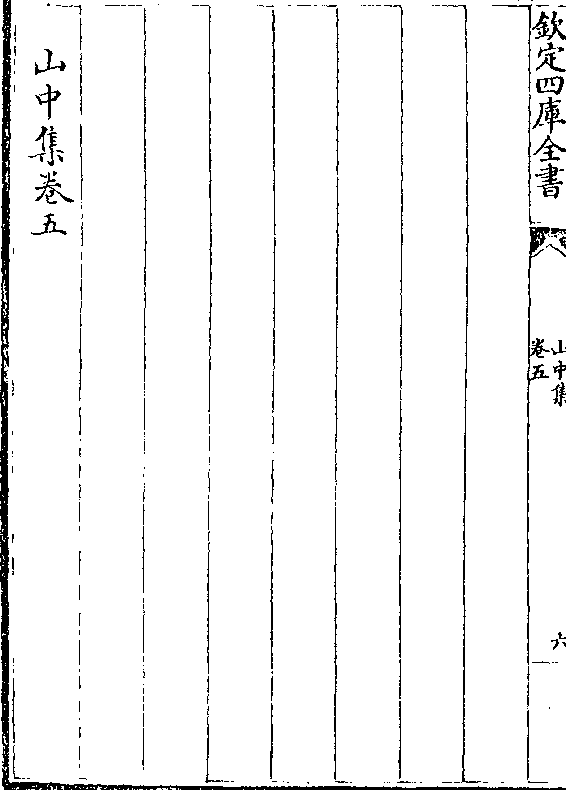 欽定四庫全書
山中集
卷五
六
山中集卷五